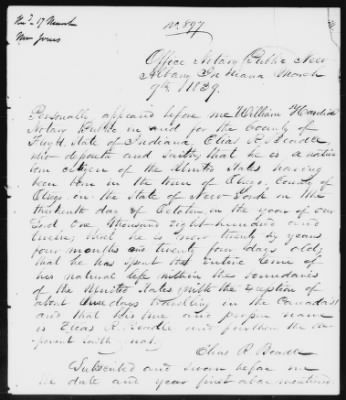 No. 897
Office Notary Public New
Albany Indiana March
9th 1839.
Personally appeared before me William
Notary Public in and for the County of
Floyd State of Indiana Elias R. Beadle
who deposeth and saith, that he is a native
born citizen of the United States having
been born in the town of Otsego, County of
Otsego in the State of New York on the
thirteenth day of October in the year of our
Lord One thousand Eight hundred and
twelve, that he is now twenty six years
four months and twenty four days old,
that he has spent the entire time of
his natural life within the boundaries
of the United States, with the exception of
about three days travelling in the Canadas
and that his true and proper name
is Elias R. Beadle and further the de-
ponent saith not.
Elias R. Beadle
Subscribed and sworn before me
the date and year first above mentioned